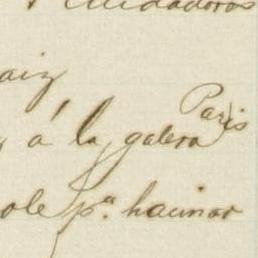 Cuidadoros
aiz
Paris
y á la galera
ole pª. hacinar